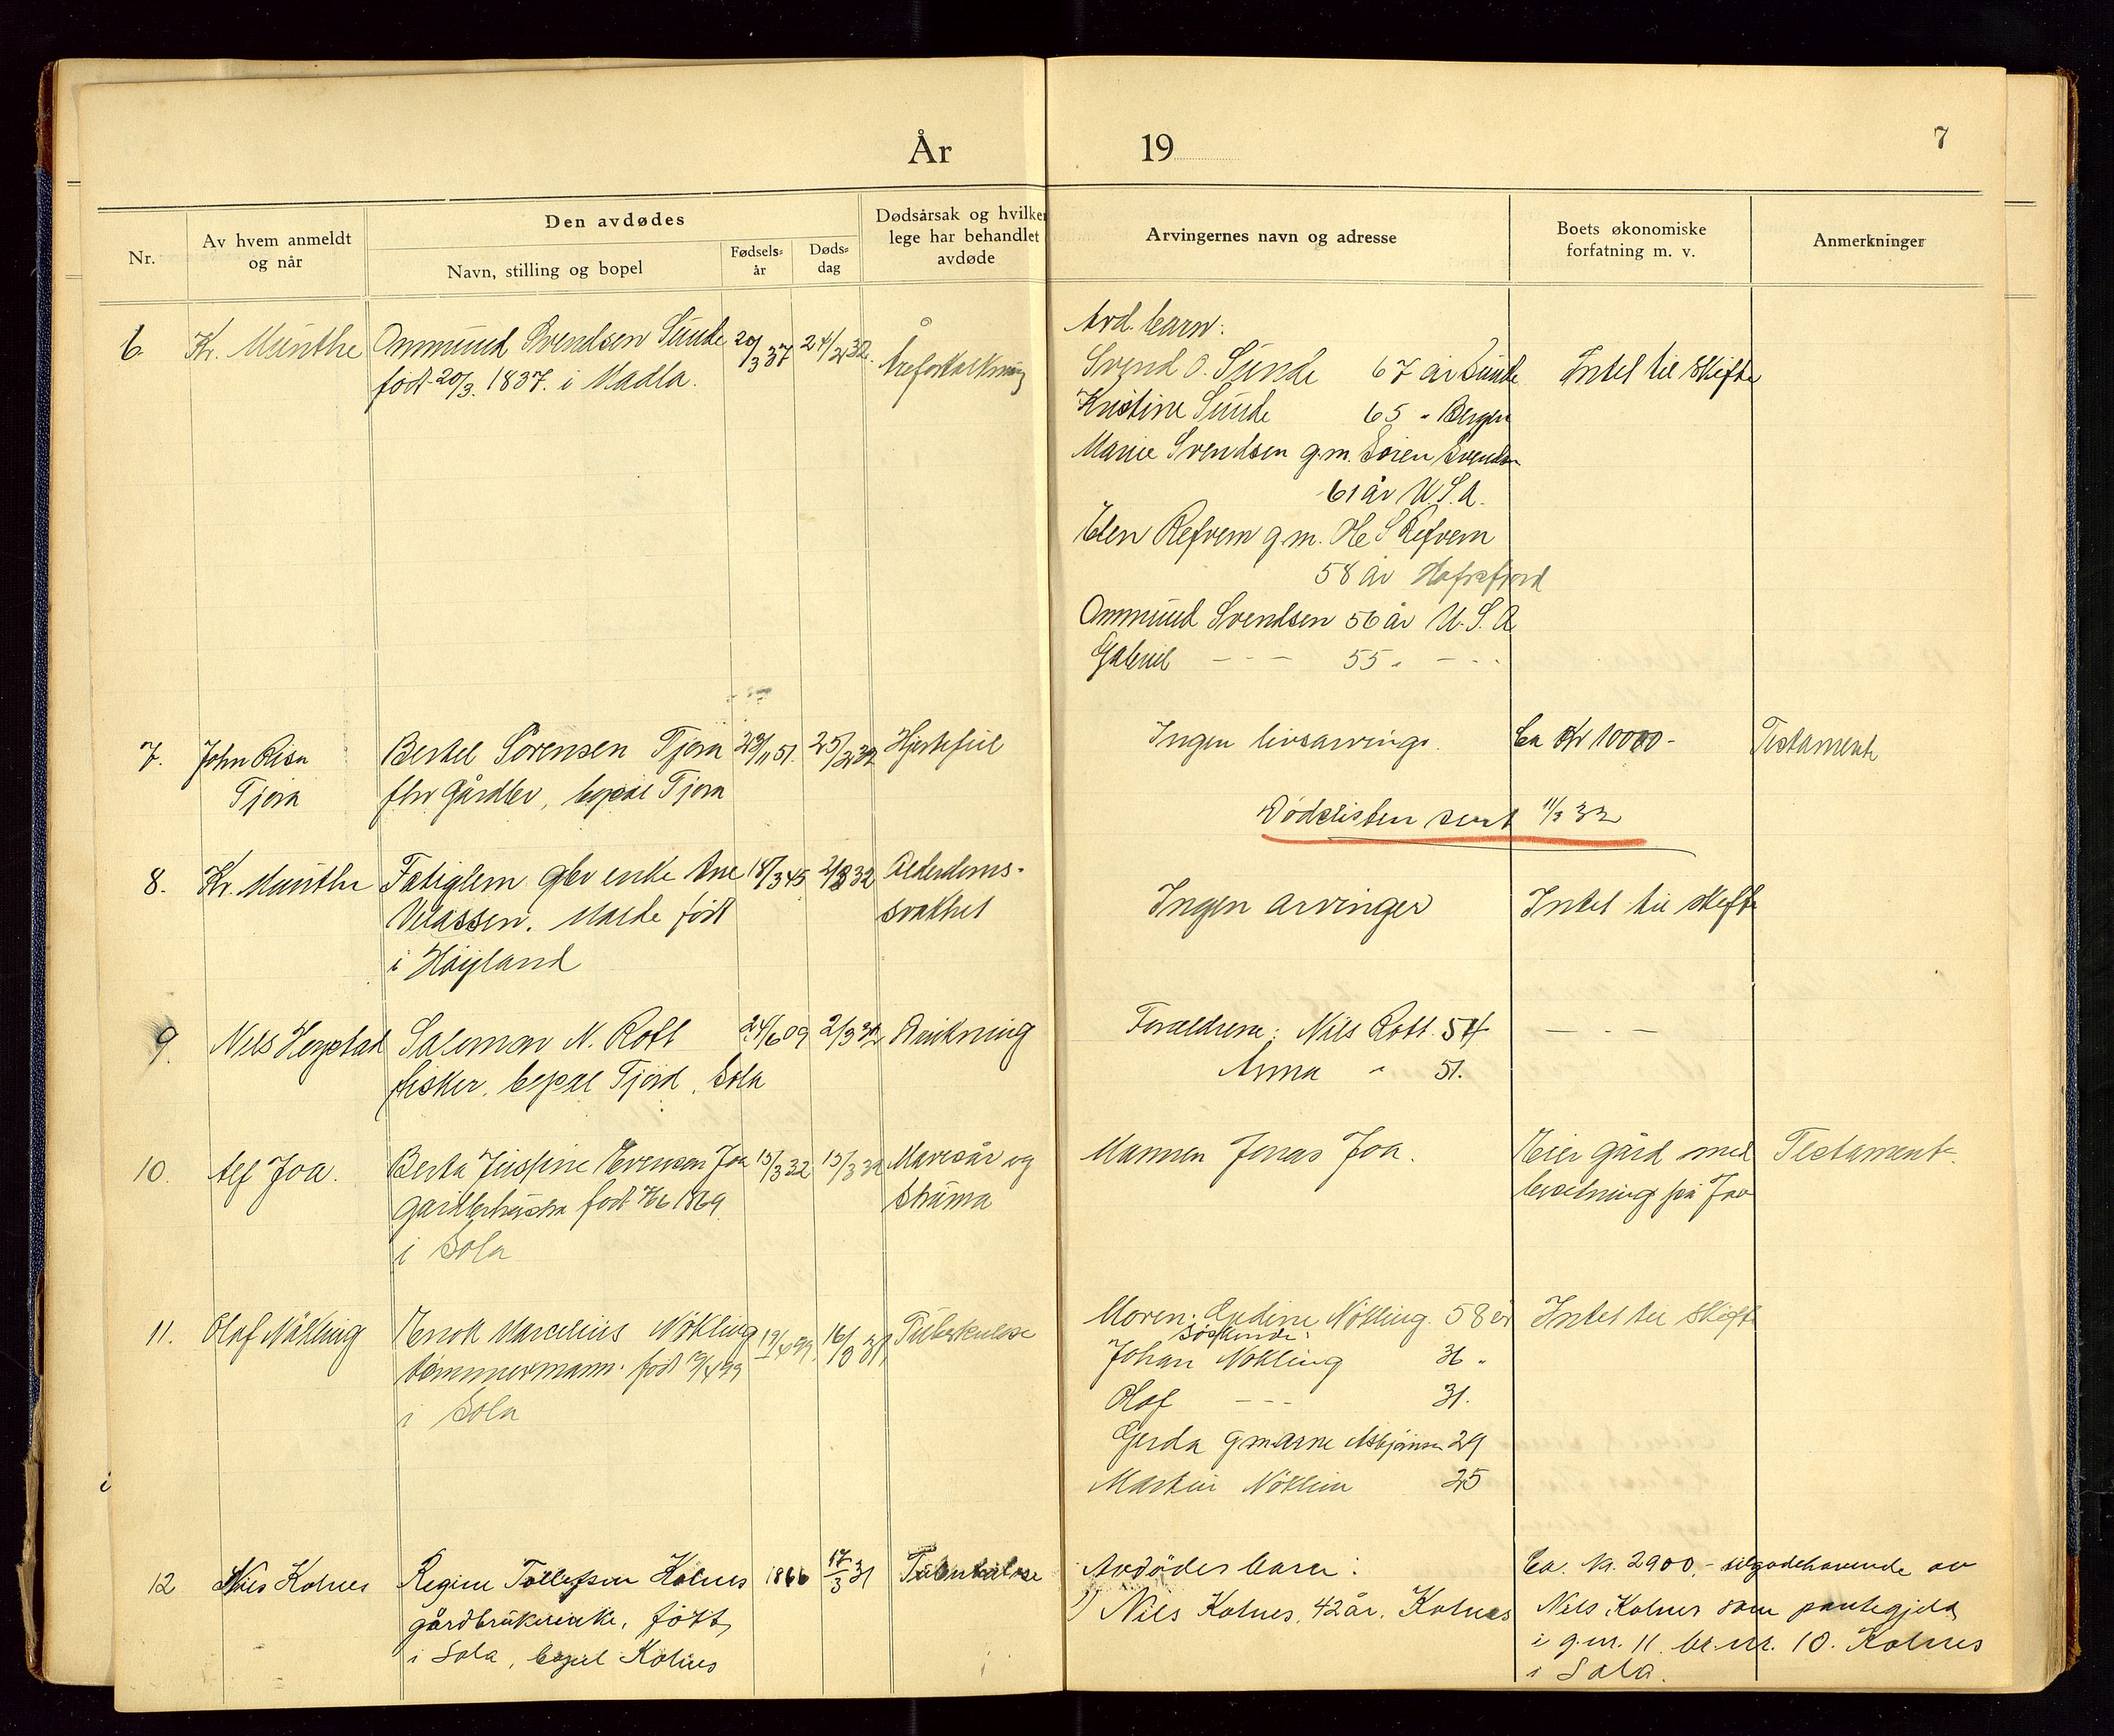 År 19
7
Nr.
Av hvem anmeldt
og når
Den avdødes
Navn, stilling og bopel
Fødsels-
år
Døds-
dag
Dødsårsak og hvilken
lege har behandlet
avdøde
Arvingernes navn og adresse
Boets økonomiske
forfatning m. v.
Anmerkninger
6. Kr. Munthe Ommund Svendsen Sunde 20/3 37 24/2 32. Åreforkalkning
født 20/3. 1837. i Madla.
Avd. barn:
Svend O. Sunde 67 år Sunde Intet til skifte
Kristine Sunde 65 " Bergen
Marie Svendsen g.m. Sören Svendsen
61 år U.S.A.
Elen Refvem g.m. Ole S Refvem
58 år Hafrsfjord
Ommund Svendsen 56 år U.S.A
Gabriel - - - 55 " - - -
7. John Risa Bertel Sörensen Tjora 23/11 51. 25/2 32 Hjertefeil Ingen livsarvinge. Ca Kr 10000- Testamente
Tjora fhv Gårdbr, bopæl Tjora
Dödslisten sent 11/3 32
8. Kr. Munthe Fatiglem gbr enke Ane 18/3 45 2/3 32 Alderdoms-
Malde født svakhet Ingen arvinger Intet til skifte
i Höyland
9. Nils Salomon N. Rott 24/6 09 2/3 32 Drukning Forældrene: Nils Rott 54 - - -
fisker, bopæl Tjord, Sola Anna " 51.
10. Alf Joa. Berta Jusfine Evensen Joa 15/3 32 15/3 32 Mavesår og Mannen Jonas Joa. Eier gård med Testament.
født 1869 struma besetning på Joa
i Sola
11. Olaf Nökling Enok Marcelius Nökling 19/4 99 16/ 31 Tuberkulose Moren: Nökling. 58 år Intet til skifte
tömmermann. født 19/4 99 Söskende:
i Sola Johan Nökling 36 "
Olaf - - - 31.
Gerda g.m. Arne Asbjörnsen 29
Martin Nöklin 25
12 Nils Kolnes Regine Tollefsen Kolnes 1866 17/3 31 Tuberkulose Avdödes barn: Ca. kr. 2900,- tilgodehavende av
gårdbrukerenke, född 1) Nils Kolnes, 42 år. Kolnes Nils Kolnes som pantegjeld
i Sola, bopel Kolnes i g.nr. 11 br.nr. 10. Kolnes
i Sola.